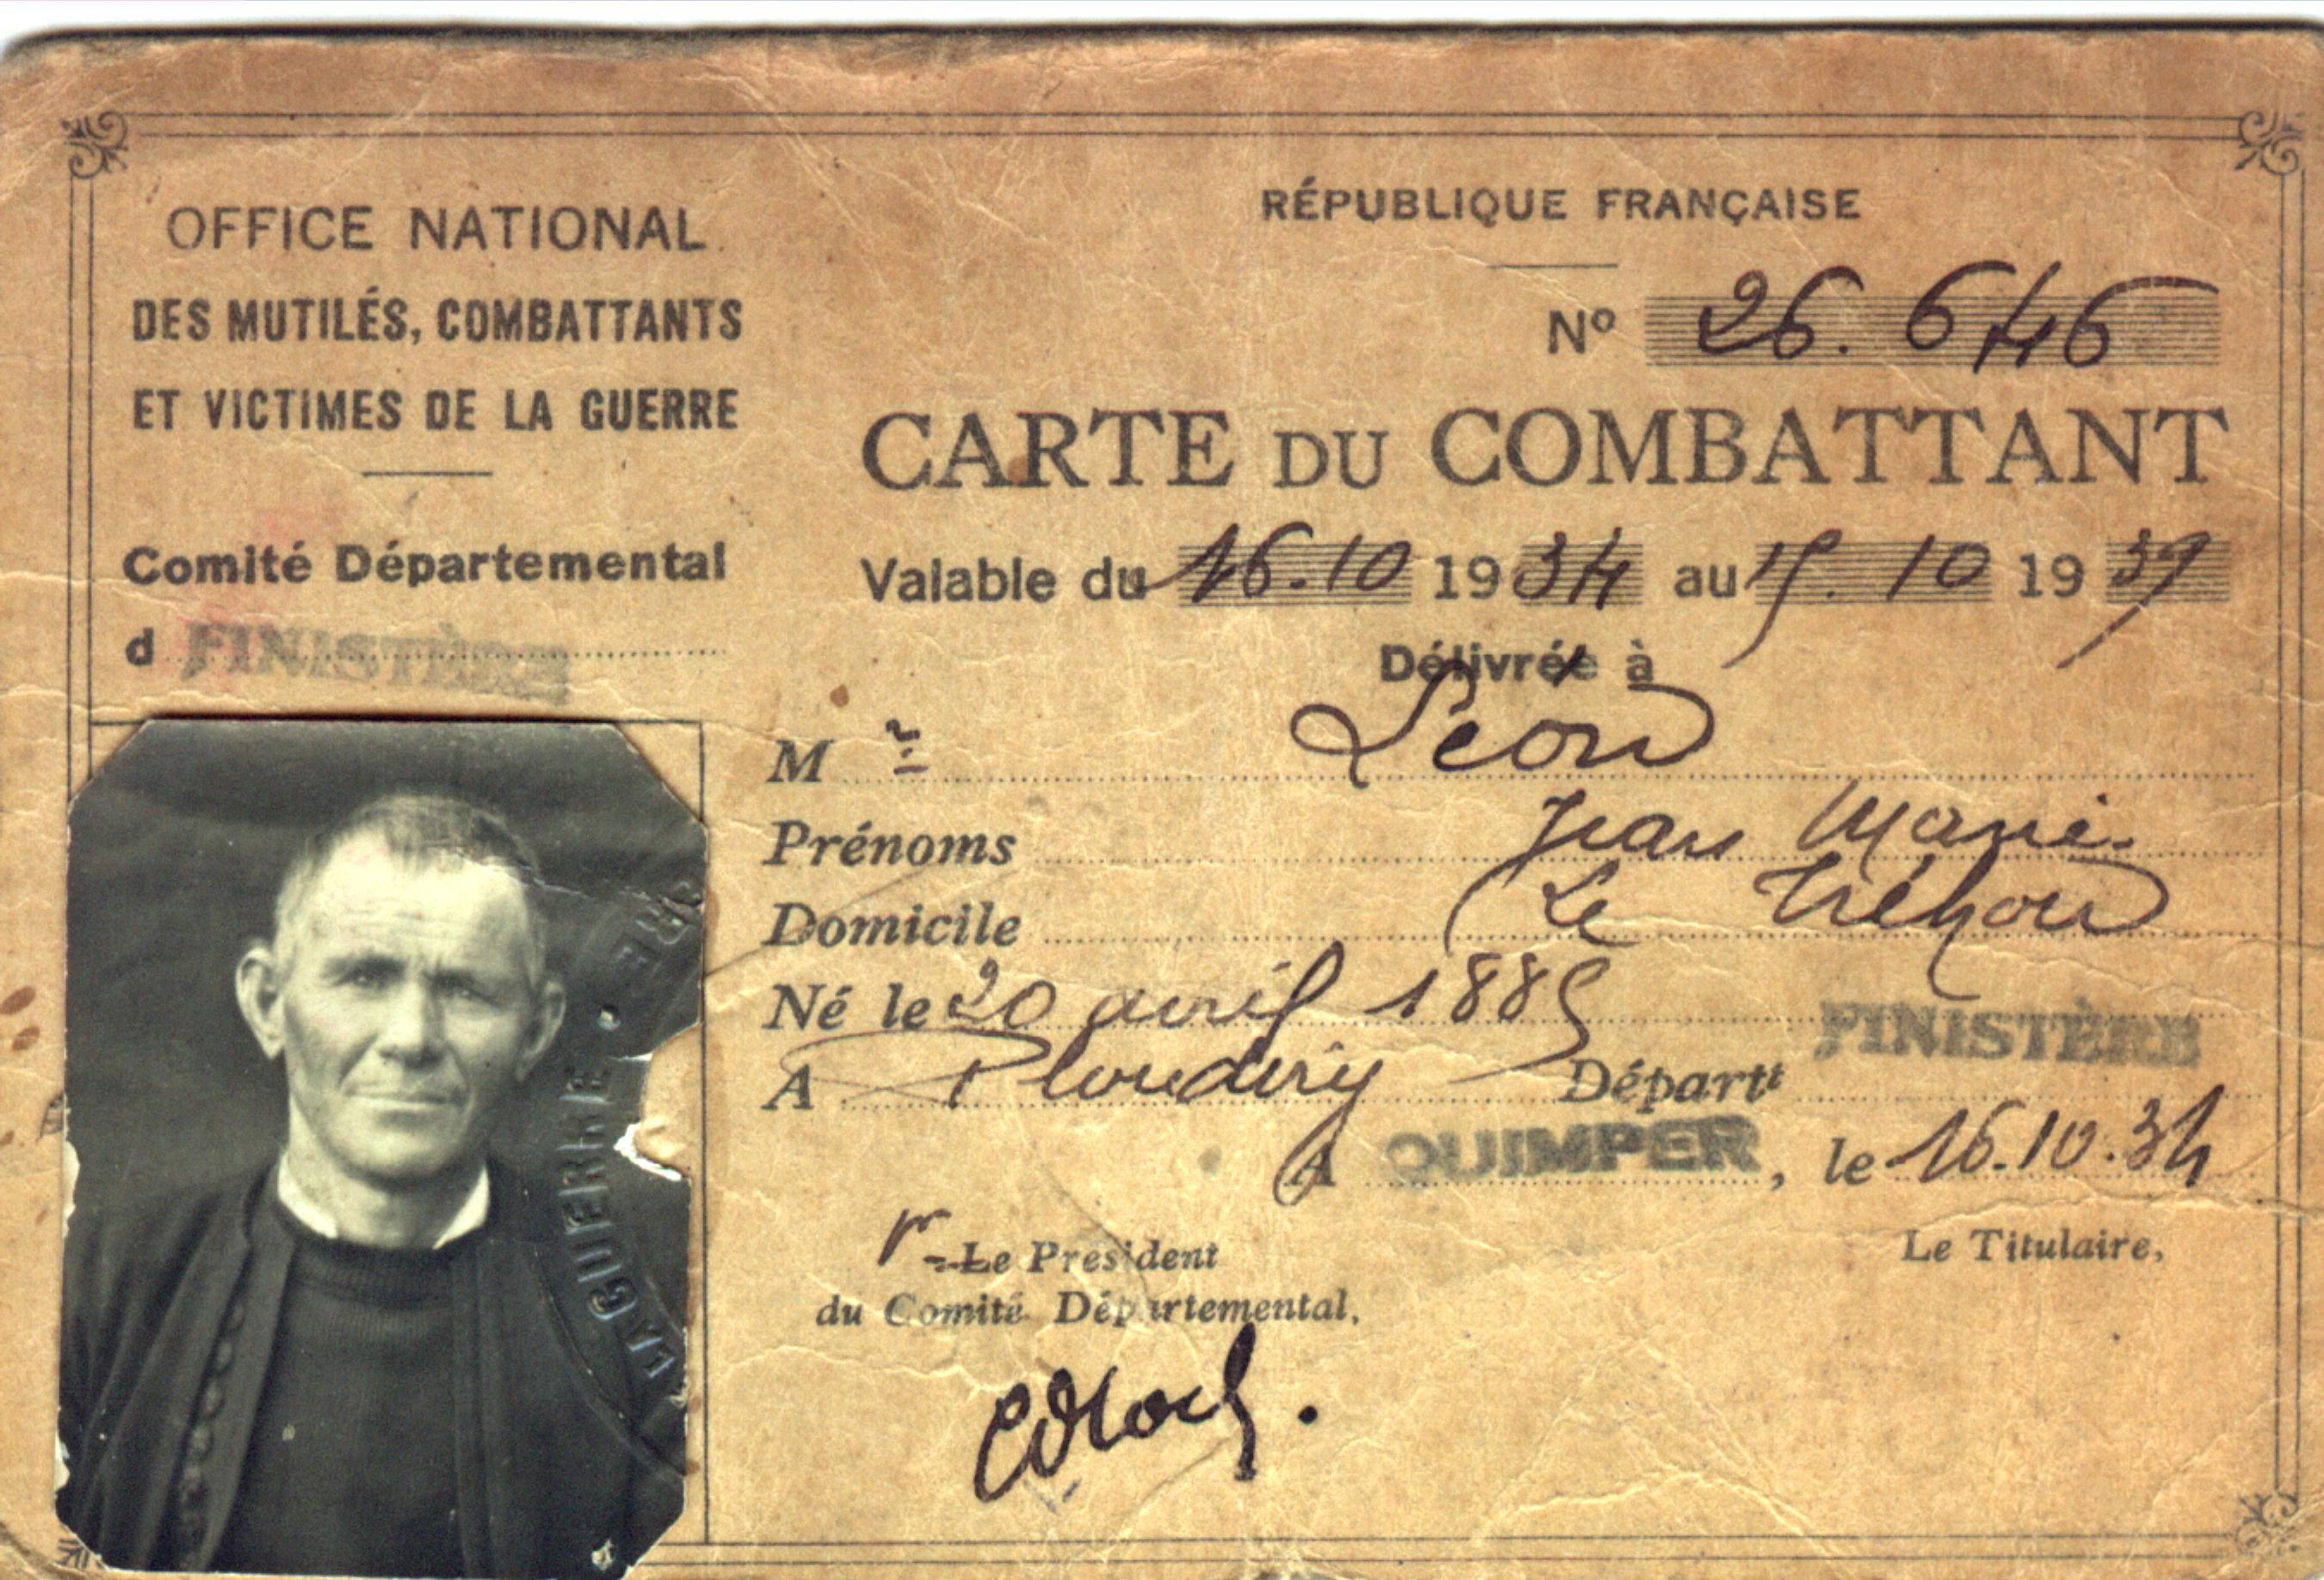 OFFICE NATIONAL
DES MUTILÉS, COMBATTANTS
ET VICTIMES DE LA GUERRE
Comité Départemental
d FINISTÈRE
RÉPUBLIQUE FRANÇAISE
Nº 26.646
CARTE DU COMBATTANT
Valable du 16.10 1934 au 15.10 1939
Délivrée à
M r Léon
Prénoms Jean Marie
Domicile Le Tréhou
Né le 20 avril 1885
A Ploudiry Départt FINISTÈRE
A QUIMPER, le 16.10.34
Le Président
du Comité Départemental,
Le Titulaire,
LA GUERRE